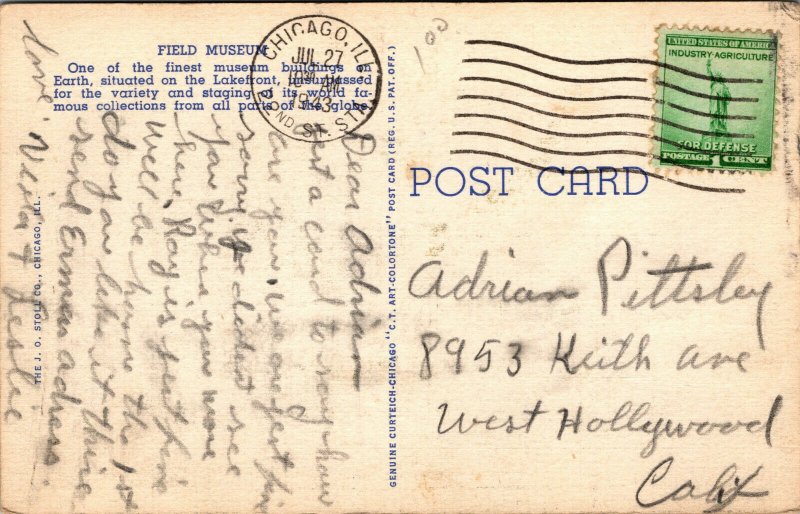 FIELD MUSEUM
One of the finest museum buildings on
Earth, situated on the Lakefront, unsurpassed
for the variety and staging of its world fa-
mous collections from all parts of the globe.
CHICAGO, ILL.
JUL 27
1943
UNITED STATES OF AMERICA
INDUSTRY-AGRICULTURE
FOR DEFENSE
POSTAGE 1 CENT
100
POST CARD
Dear Adrian
Just a card to say how
are you. We are just fine
sorry I dident see
you when you were
here. Ray is just fine
will be home the 1st
do you like it there
send Erman adress.
Love
Vera & Leslie
Adrian Pittsley
8953 Keith ave
West Hollywood
Calif
THE J. O. STOLL CO., CHICAGO, ILL.
GENUINE CURTEICH-CHICAGO "C.T. ART-COLORTONE" POST CARD (REG. U.S. PAT. OFF.)